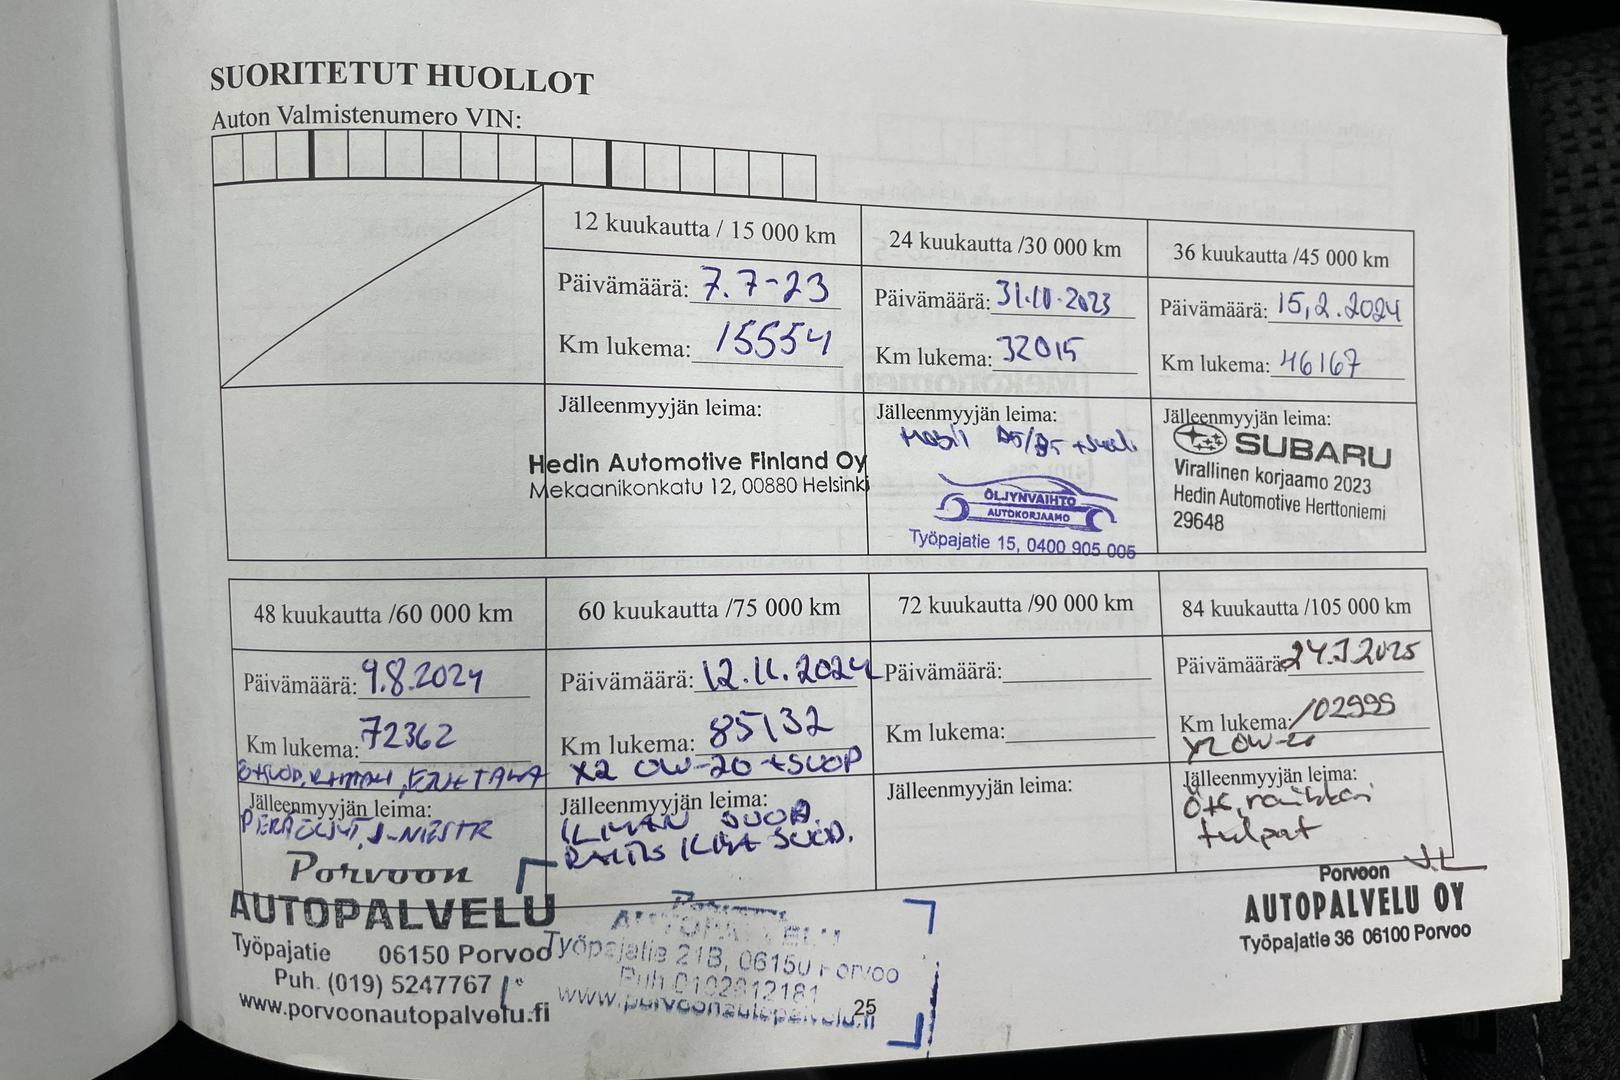 SUORITETUT HUOLLOT
Auton Valmistenumero VIN:
12 kuukautta / 15 000 km
Päivämäärä: 7.7-23
Km lukema: 15554
Jälleenmyyjän leima:
Hedin Automotive Finland Oy
Mekaanikonkatu 12, 00880 Helsinki
24 kuukautta /30 000 km
Päivämäärä: 31.10.2023
Km lukema: 32015
Jälleenmyyjän leima:
Mobil
ÖLJYNVAIHTO
AUTOKORJAAMO
Työpajatie 15, 0400 905 005
36 kuukautta /45 000 km
Päivämäärä: 15.2.2024
Km lukema: 46167
Jälleenmyyjän leima:
SUBARU
Virallinen korjaamo 2023
Hedin Automotive Herttoniemi
29648
48 kuukautta /60 000 km
Päivämäärä: 9.8.2024
Km lukema: 72362
Jälleenmyyjän leima:
Porvoon
AUTOPALVELU
Työpajatie 06150 Porvoo
Puh. (019) 5247767
www.porvoonautopalvelu.fi
60 kuukautta /75 000 km
Päivämäärä: 12.11.2024
Km lukema: 85132
X2 0W-20 +SUOD
Jälleenmyyjän leima:
ILMAN SUOD.
RAITIS ILMA SUOD.
Porvoon
AUTOPALVELU
Työpajatie 21B, 06150 Porvoo
Puh 0102812181
www.porvoonautopalvelu.fi
72 kuukautta /90 000 km
Päivämäärä:
Km lukema:
Jälleenmyyjän leima:
84 kuukautta /105 000 km
Päivämäärä: 24.3.2025
Km lukema: 102995
X2 0W-20
Jälleenmyyjän leima:
Ö+S, raikkari
tulpat
Porvoon
AUTOPALVELU OY
Työpajatie 36 06100 Porvoo
25